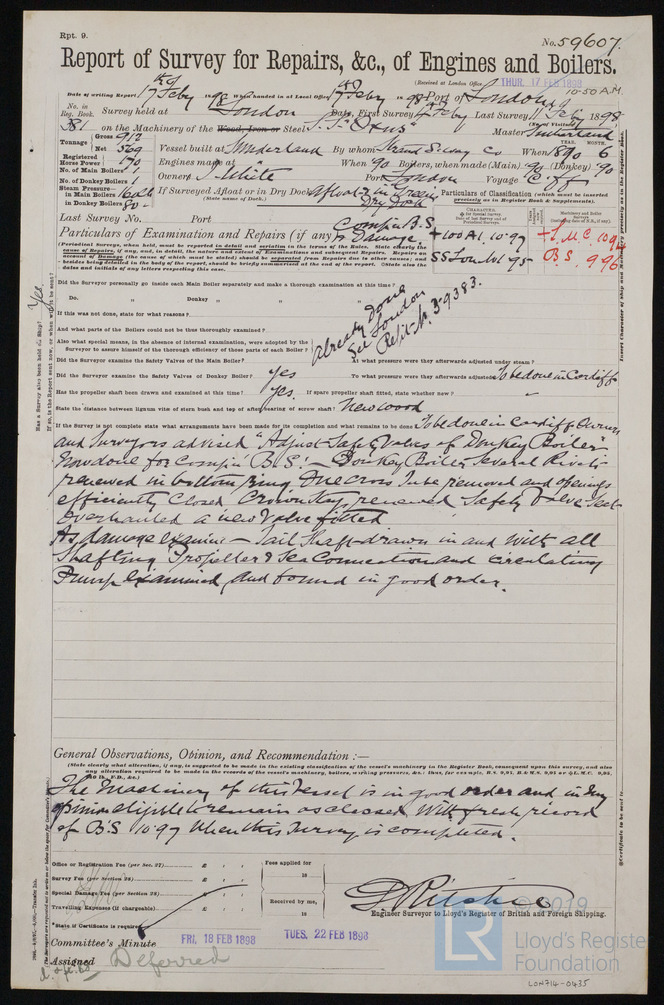 Rpt. 9.
No. 59607.
Report of Survey for Repairs, &c., of Engines and Boilers.
(Received at London Office THUR. 17 FEB 1898 10-50 A.M.
Date of writing Report 17th Feby 1898 When handed in at Local Office 17th Feby 1898 Port of London
No. in Reg. Book. Survey held at London Date, First Survey 4 Feby Last Survey 11 Feby 1898
381 on the Machinery of the Wood, Iron or Steel S.S. "Oxus" Master Sutherland
Tonnage Gross 912 Net 569 Vessel built at Sunderland By whom Strand Slipway Co When 1890 6
Registered Horse Power 190 Engines made at When 90 Boilers, when made (Main) 90 (Donkey) 90
No. of Main Boilers 1 Owners J White Port London Voyage Cff
No. of Donkey Boilers 1
Steam Pressure in Main Boilers 160 lb
in Donkey Boilers 80
If Surveyed Afloat or in Dry Dock Afloat & in Green Dry Dock
(State name of Dock.)
Particulars of Classification (which must be inserted precisely as in Register Book & Supplements).
Last Survey No. Port
Particulars of Examination and Repairs (if any) Compn B.S. & Damage
+100A1. 10.97
SS Lon No1 95
+L.M.C. 10.94
B.S. 9.96
Did the Surveyor personally go inside each Main Boiler separately and make a thorough examination at this time?
Do. Donkey
If this was not done, state for what reasons?
And what parts of the Boilers could not be thoroughly examined?
Also what special means, in the absence of internal examination, were adopted by the
Surveyor to assure himself of the thorough efficiency of those parts of each Boiler?
Already done
See London
Rept. No. 59383.
Did the Surveyor examine the Safety Valves of the Main Boiler? At what pressure were they afterwards adjusted under steam?
Did the Surveyor examine the Safety Valves of Donkey Boiler? Yes To what pressure were they afterwards adjusted To be done in Cardiff
Has the propeller shaft been drawn and examined at this time? Yes. If spare propeller shaft fitted, state whether new?
State the distance between lignum vitæ of stern bush and top of after bearing of screw shaft? New wood
If the Survey is not complete state what arrangements have been made for its completion and what remains to be done To be done in Cardiff Owners
and Surveyors advised "Adjust Safety Valves of Donkey Boiler"
Now done for Compn B.S. — Donkey Boiler several Rivets
renewed in bottom ring One cross tube removed and openings
efficiently closed Crown Stay renewed Safety Valve Seat
overhauled a new Valve fitted
As damage examine — Tail Shaft drawn in and with all
Shafting Propeller & Sea Connections and circulating
Pump examined, and found in good order.
General Observations, Opinion, and Recommendation :—
(State clearly what alteration, if any, is suggested to be made in the existing classification of the vessel's machinery in the Register Book, consequent upon this survey, and also
The Machinery of this Vessel is in good order and in my
opinion eligible to remain as classed, With fresh record
of B.S. 10.97 When this Survey is completed.
Office or Registration Fee (per Sec. 27) £
Survey Fee (per Section 28) £
Special Damage Fee (per Section 28) £
Travelling Expenses (if chargeable) £
Fees applied for
18
Received by me,
18
*State if Certificate is required
D Ritchie
Engineer Surveyor to Lloyd's Register of British and Foreign Shipping.
Committee's Minute FRI. 18 FEB 1898 TUES. 22 FEB 1898
Assigned Deferred
Has a Survey also been held on Ship? Yes.
©2019
LR Lloyd's Register Foundation
LON714-0435